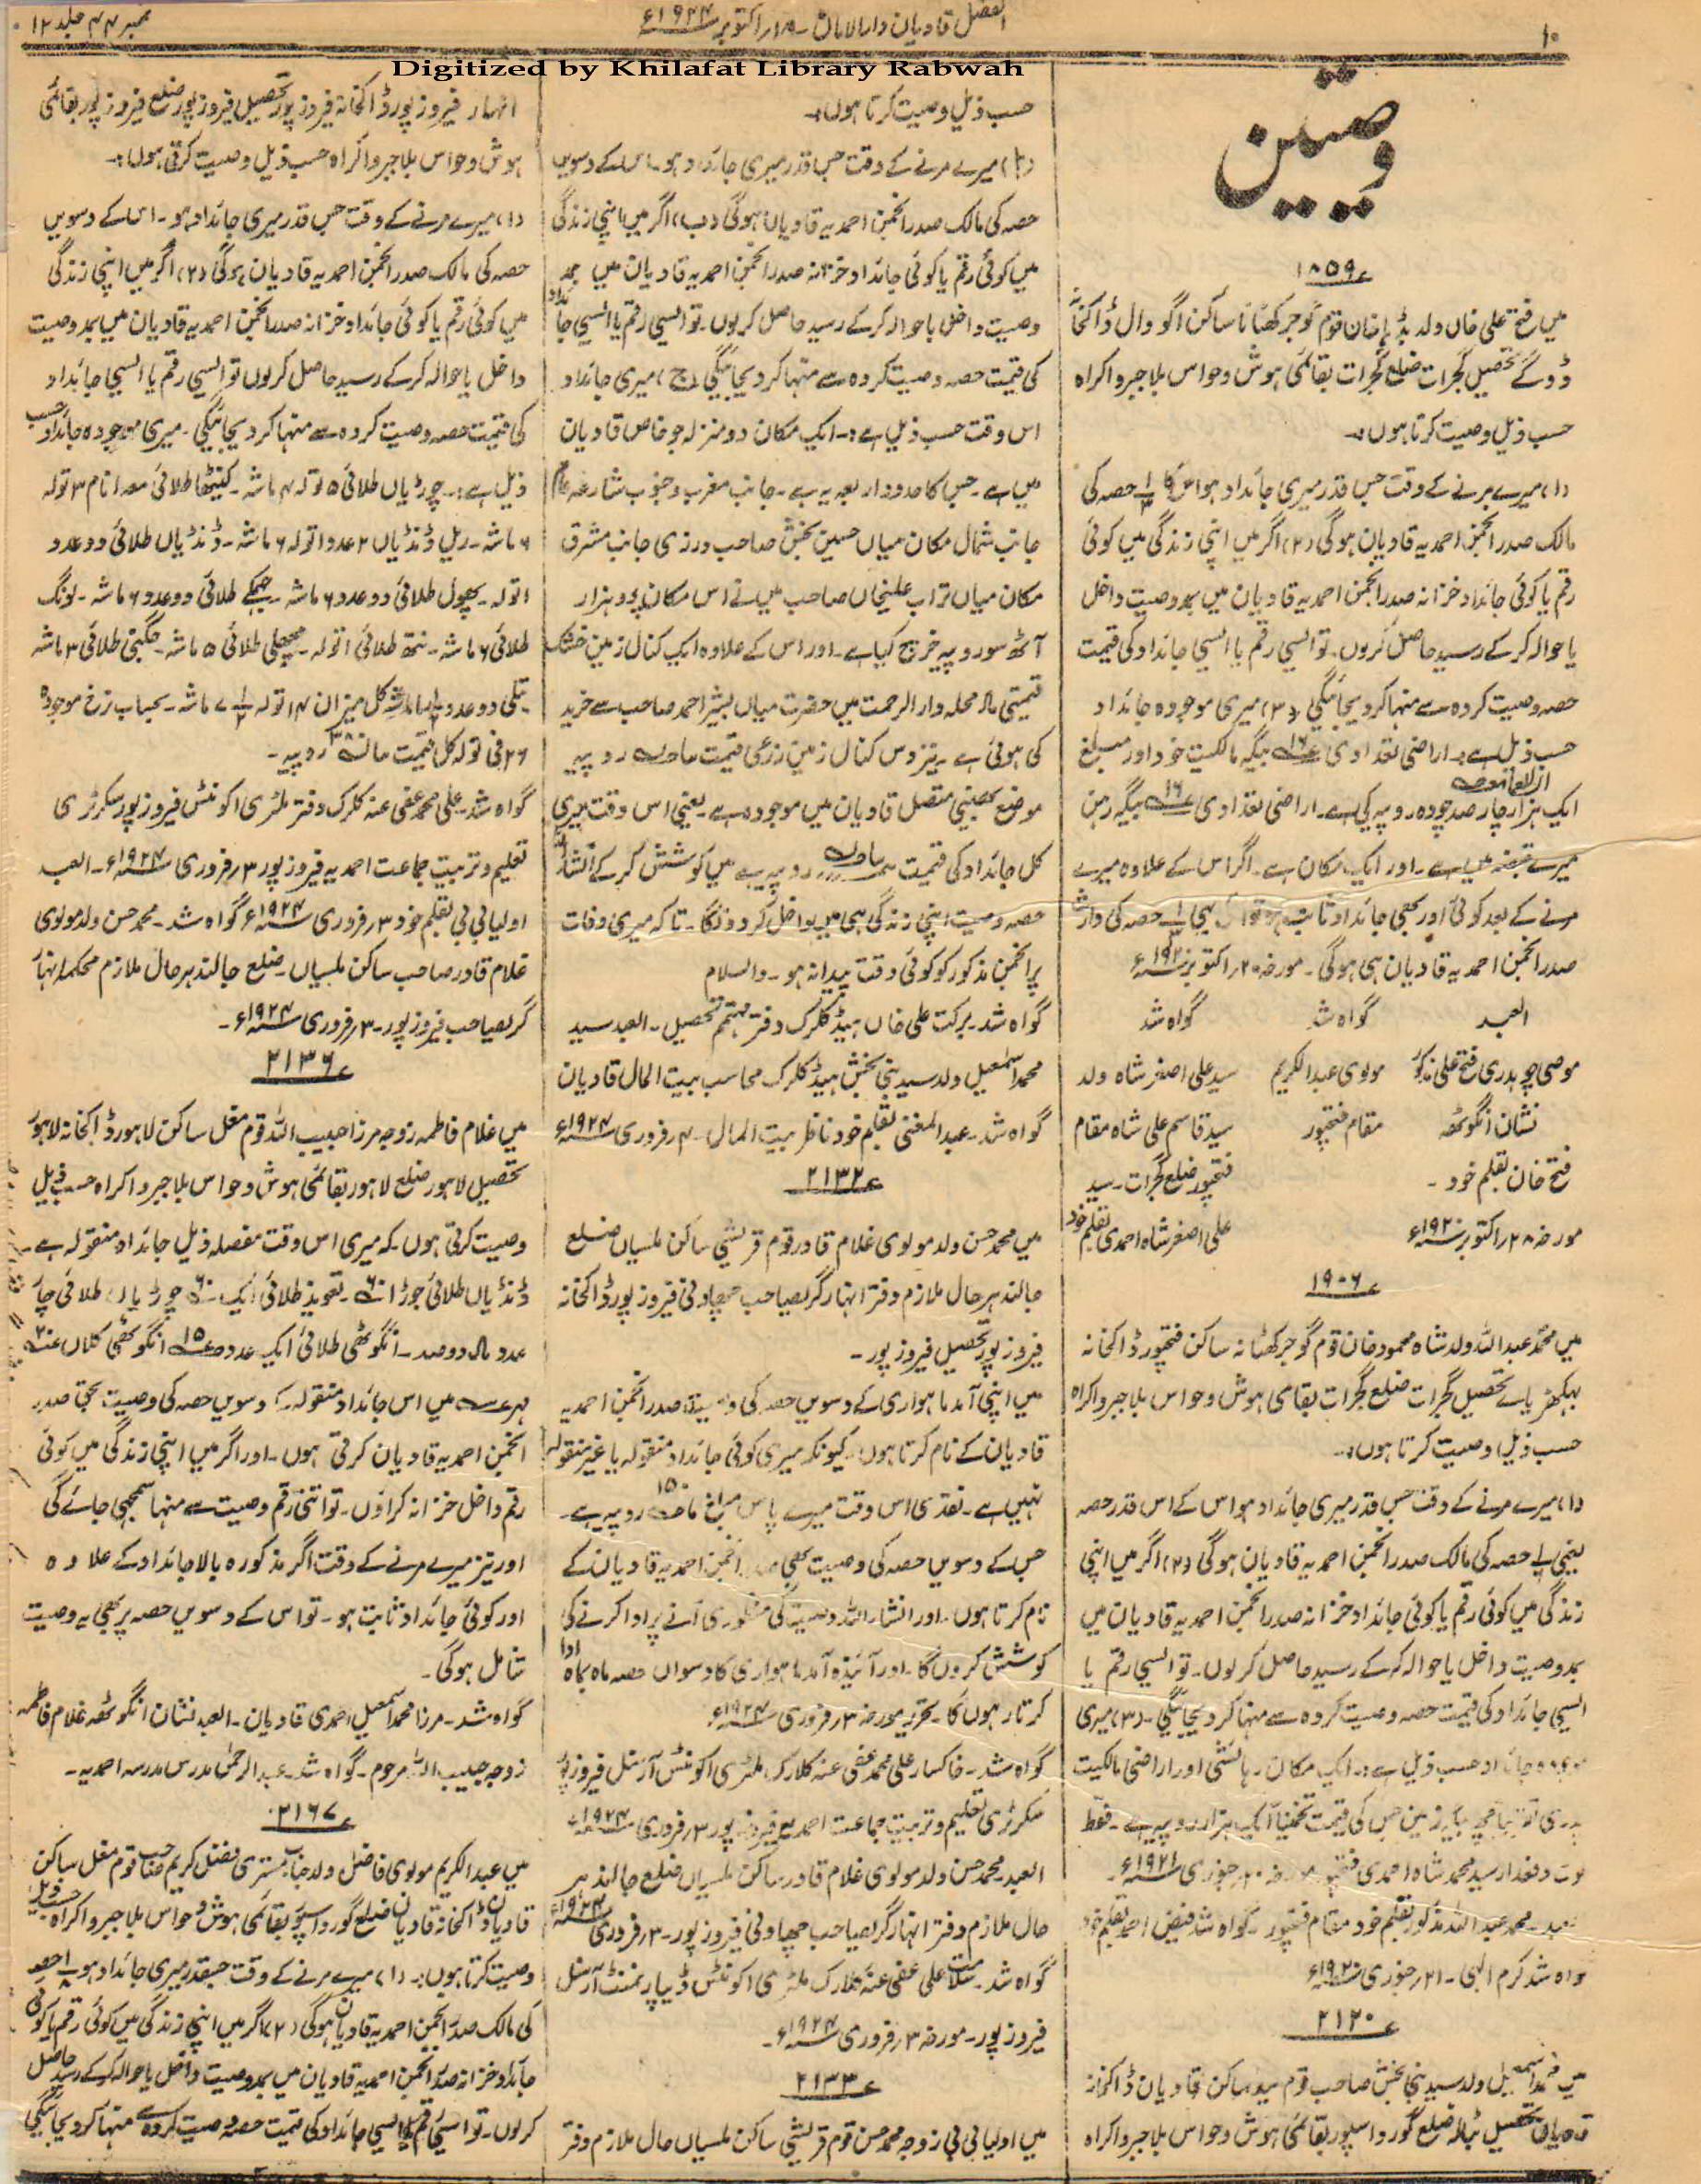 ۱۰
الفضل قادیان دارالامان ۔ ۱۸ر اکتوبر ۱۹۲۴ء
نمبر ۴۴ جلد ۱۲
Digitized by Khilafat Library Rabwah
وصیتیں
۱۸۵۹ء
میں فتح علی خاں ولد بڈہا خان قوم گوجر کھٹانا ساکن اگووال ڈاکخانہ
ڈوگے تحصیل گجرات ضلع گجرات بقائمی ہوش وحواس بلا جبر و اکراہ
حسب ذیل وصیت کرتا ہوں:۔
(۱) میرے مرنے کے وقت جس قدر میری جائداد ہو اس کا حصہ کی
مالک صدر انجمن احمدیہ قادیان ہوگی (۲) اگر میں اپنی زندگی میں کوئی
رقم یا کوئی جائداد خزانہ صدر انجمن احمدیہ قادیان میں بمد وصیت داخل
یا حوالہ کر کے رسید حاصل کروں۔ تو ایسی رقم یا ایسی جائداد کی قیمت
حصہ وصیت کردہ سے منہا کر دیجائیگی (۳) میری موجودہ جائداد
حسب ذیل ہے:۔ اراضی تعدادی بیگہ مالکیت خود اور مبلغ
ایک ہزار چار صد چودہ روپیہ کی ہے۔ اراضی تعدادی بیگہ رہن
میرے قبضہ میں ہے۔ اور ایک مکان ہے۔ اگر اس کے علاوہ میرے
مرنے کے بعد کوئی اور بھی جائداد ثابت ہو تو اس کی بھی حصہ کی وارث
صدر انجمن احمدیہ قادیان ہی ہوگی۔ مورخہ ۲۰ر اکتوبر ۱۹۲۰ء
العبد گواہ شد گواہ شد
موصی چوہدری فتح علی مذکور مولوی عبدالکریم سید علی اصغر شاہ ولد
نشان انگوٹھہ مقام فتحپور سید قاسم علی شاہ مقام
فتح خان بقلم خود۔ فتحپور ضلع گجرات۔ سید
مورخہ ۲۸ر اکتوبر ۱۹۲۰ء علی اصغر شاہ احمدی بقلم خود
۱۹۰۶ء
میں محمد عبداللہ ولد شاہ محمود خان قوم گوجر کھٹانہ ساکن فتحپور ڈاکخانہ
تحصیل گجرات ضلع گجرات بقائمی ہوش وحواس بلا جبر و اکراہ
حسب ذیل وصیت کرتا ہوں:۔
(۱) میرے مرنے کے وقت جس قدر میری جائداد ہو اس کے اس قدر حصہ
یعنی حصہ کی مالک صدر انجمن احمدیہ قادیان ہوگی (۲) اگر میں اپنی
زندگی میں کوئی رقم یا کوئی جائداد خزانہ صدر انجمن احمدیہ قادیان میں
بمد وصیت داخل یا حوالہ کر کے رسید حاصل کر لوں۔ تو ایسی رقم یا
ایسی جائداد کی قیمت حصہ وصیت کردہ سے منہا کر دیجائیگی۔ (۳) میری
موجودہ جائداد حسب ذیل ہے:۔ ایک مکان رہائشی اور اراضی مالکیت
زمین جس کی قیمت تخمیناً ایک ہزار روپیہ ہے۔ فقط
سید محمد شاہ احمدی فتحپور مورخہ جنوری ۱۹۲۱ء۔
العبد۔ محمد عبداللہ مذکور بقلم خود مقام فتحپور۔ گواہ شد فیض احمد بقلم خود
گواہ شد کرم الہی۔ ۲۱ر جنوری ۱۹۲۰ء
۲۱۲۰ء
میں محمد اسمعیل ولد سید نبی بخش صاحب قوم سید ساکن قادیان ڈاکخانہ
قادیان تحصیل بٹالہ ضلع گورداسپور بقائمی ہوش وحواس بلا جبر و اکراہ
حسب ذیل وصیت کرتا ہوں:۔
میرے مرنے کے وقت جس قدر میری جائداد ہو۔ اس کے دسویں
حصہ کی مالک صدر انجمن احمدیہ قادیاں ہوگی (ب) اگر میں اپنی زندگی
میں کوئی رقم یا کوئی جائداد خزانہ صدر انجمن احمدیہ قادیان میں بمد
وصیت داخل یا حوالہ کر کے رسید حاصل کر لوں۔ تو ایسی رقم یا ایسی جائداد
کی قیمت حصہ وصیت کردہ سے منہا کر دیجائیگی (ج) میری جائداد
اس وقت حسب ذیل ہے:۔ ایک مکان دو منزلہ جو خاص قادیان
میں ہے۔ جس کا حدود اربعہ یہ ہے۔ جانب مغرب و جنوب شارعہ عام
جانب شمال مکان میاں حسین بخش صاحب درزی جانب مشرق
مکان میاں تراب علیخاں صاحب میں نے اس مکان پر دو ہزار
آٹھ سو روپیہ خرچ کیا ہے۔ اور اس کے علاوہ ایک کنال زمین خشک
قیمتی محلہ دار الرحمت میں حضرت میاں بشیر احمد صاحب سے خرید
کی ہوئی ہے۔ نیز دس کنال زمین زرعی قیمت روپیہ
موضع بھینی متصل قادیان میں موجود ہے۔ یعنی اس وقت میری
کل جائداد کی قیمت روپیہ ہے میں کوشش کر کے انشاءاللہ
حصہ وصیت اپنی زندگی ہی میں داخل کر دونگا۔ تاکہ میری وفات
پر انجمن مذکور کو کوئی دقت پیدا نہ ہو۔ والسلام
گواہ شد۔ برکت علی خاں ہیڈ کلرک دفتر مہتمم تحصیل۔ العبد سید
محمد اسمعیل ولد سید نبی بخش ہیڈ کلرک محاسب بیت المال قادیان
گواہ شد۔ عبد المغنی بقلم خود ناظر بیت المال۔ ۴ر فروری ۱۹۲۴ء
۲۱۳۲ء
میں محمد حسن ولد مولوی غلام قادر قوم قریشی ساکن ملسیاں ضلع
جالندہر حال ملازم دفتر انہار گریصاحب چھاونی فیروزپور ڈاکخانہ
فیروزپور تحصیل فیروز پور۔
میں اپنی آمد ماہواری کے دسویں حصہ کی وصیت صدر انجمن احمدیہ
قادیان کے نام کرتا ہوں۔ کیونکہ میری کوئی جائداد منقولہ یا غیر منقولہ
نہیں ہے۔ نقدی اس وقت میرے پاس مبلغ ۱۵۰ روپیہ ہے۔
جس کے دسویں حصہ کی وصیت بھی صدر انجمن احمدیہ قادیان کے
نام کرتا ہوں۔ اور انشاءاللہ وصیت کی منظوری آنے پر ادا کرنے کی
کوشش کروں گا۔ اور آئندہ آمد ماہواری کا دسواں حصہ ماہ بماہ ادا
کرتا رہوں گا۔ تحریر مورخہ ۳ر فروری ۱۹۲۴ء
گواہ شد۔ خاکسار علی محمد عفی عنہ کلارک ملٹری اکونٹس آرسنل فیروزپور
سکرٹری تعلیم و تربیت جماعت احمدیہ فیروز پور ۳ر فروری ۱۹۲۴ء
العبد۔ محمد حسن ولد مولوی غلام قادر ساکن ملسیاں ضلع جالندہر
حال ملازم دفتر انہار گریصاحب چھاونی فیروز پور۔ ۳ر فروری ۱۹۲۴ء
گواہ شد۔ سلامت علی عفی عنہ کلارک ملٹری اکونٹس ڈیپارٹمنٹ آرسنل
فیروز پور۔ مورخہ ۳ر فروری ۱۹۲۴ء۔
۲۱۳۳ء
میں اولیا بی بی زوجہ محمد حسن قوم قریشی ساکن ملسیاں حال ملازم دفتر
انہار فیروز پور ڈاکخانہ فیروز پور تحصیل فیروز پور ضلع فیروز پور بقائمی
ہوش وحواس بلا جبر و اکراہ حسب ذیل وصیت کرتی ہوں:۔
(۱) میرے مرنے کے وقت جس قدر میری جائداد ہو۔ اس کے دسویں
حصہ کی مالک صدر انجمن احمدیہ قادیان ہوگی (۲) اگر میں اپنی زندگی
میں کوئی رقم یا کوئی جائداد خزانہ صدر انجمن احمدیہ قادیان میں بمد وصیت
داخل یا حوالہ کر کے رسید حاصل کر لوں تو ایسی رقم یا ایسی جائداد
کی قیمت حصہ وصیت کردہ سے منہا کر دیجائیگی۔ میری موجودہ جائداد حسب
ذیل ہے:۔ چوڑیاں طلائی ۵ تولہ ۴ ماشہ۔ کینٹھا طلائی معہ انام ۳ تولہ
۶ ماشہ۔ ریل ڈنڈیاں ۲ عدد ۱ تولہ ۶ ماشہ۔ ڈنڈیاں طلائی دو عدد
۱ تولہ۔ پھول طلائی دو عدد ۶ ماشہ۔ جھمکے طلائی دو عدد ۶ ماشہ۔ لونگ
طلائی ۶ ماشہ۔ نتھ طلائی ۱ تولہ۔ مچھلی طلائی ۵ ماشہ۔ جگنی طلائی ۳ ماشہ
تیلی دو عدد ماشہ کل میزان ۱۴ تولہ ۷ ۱/۲ ماشہ۔ بحساب نرخ موجودہ
۲۶ فی تولہ کل قیمت روپیہ۔
گواہ شد۔ علی محمد عفی عنہ کلرک دفتر ملٹری اکونٹس فیروز پور سکرٹری
تعلیم و تربیت جماعت احمدیہ فیروز پور ۳ر فروری ۱۹۲۴ء۔ العبد
اولیا بی بی بقلم خود ۳ر فروری ۱۹۲۴ء گواہ شد۔ محمد حسن ولد مولوی
غلام قادر صاحب ساکن ملسیاں۔ ضلع جالندہر حال ملازم محکمہ انہار
گریصاحب فیروز پور۔ ۳ر فروری ۱۹۲۴ء۔
۲۱۳۶ء
میں غلام فاطمہ زوجہ مرزا حبیب اللہ قوم مغل ساکن لاہور ڈاکخانہ لاہور
تحصیل لاہور ضلع لاہور بقائمی ہوش وحواس بلا جبر و اکراہ حسب ذیل
وصیت کرتی ہوں۔ کہ میری اس وقت مفصلہ ذیل جائداد منقولہ ہے۔
ڈنڈیاں طلائی جوڑا تعویذ طلائی ایک چوڑیاں طلائی چار
عدد دو صد۔ انگوٹھی طلائی ایک عدد انگوٹھی کلاں
میں اس جائداد منقولہ کے دسویں حصہ کی وصیت بحق صدر
انجمن احمدیہ قادیان کرتی ہوں۔ اور اگر میں اپنی زندگی میں کوئی
رقم داخل خزانہ کراؤں۔ تو اتنی رقم وصیت سے منہا سمجھی جائے گی
اور نیز میرے مرنے کے وقت اگر مذکورہ بالا جائداد کے علاوہ
اور کوئی جائداد ثابت ہو۔ تو اس کے دسویں حصہ پر بھی یہ وصیت
شامل ہوگی۔
گواہ شد۔ مرزا محمد اسمعیل احمدی قادیان۔ العبد نشان انگوٹھہ غلام فاطمہ
زوجہ حبیب اللہ مرحوم۔ گواہ شد۔ عبد الرحمٰن مدرس مدرسہ احمدیہ۔
۲۱۶۷ء
میں عبد الکریم مولوی فاضل ولد جناب مستری فضل کریم صاحب قوم مغل ساکن
قادیان ڈاکخانہ قادیان ضلع گورداسپور بقائمی ہوش وحواس بلا جبر و اکراہ حسب ذیل
وصیت کرتا ہوں:۔ (۱) میرے مرنے کے وقت جسقدر میری جائداد ہو ۱/۸ حصہ
کی مالک صدر انجمن احمدیہ قادیان ہوگی (۲) اگر میں اپنی زندگی میں کوئی رقم یا کوئی
جائداد خزانہ صدر انجمن احمدیہ قادیان میں بمد وصیت داخل یا حوالہ کر کے رسید حاصل
کر لوں۔ تو ایسی رقم یا ایسی جائداد کی قیمت حصہ وصیت کردہ سے منہا کر دیجائیگی